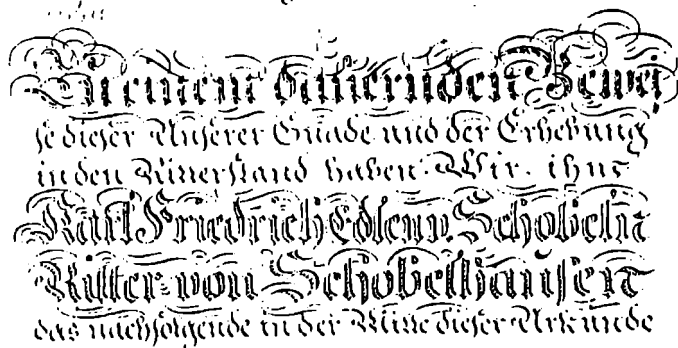 Zu einem dauernden Bewei
se dieser Unserer Gnade und der Erhebung
in den Ritterstand haben Wir ihm
Karl Friedrich Edlen v. Schobeln
Ritter von Schobelhausen
das nachfolgende in der Mitte dieser Urkunde